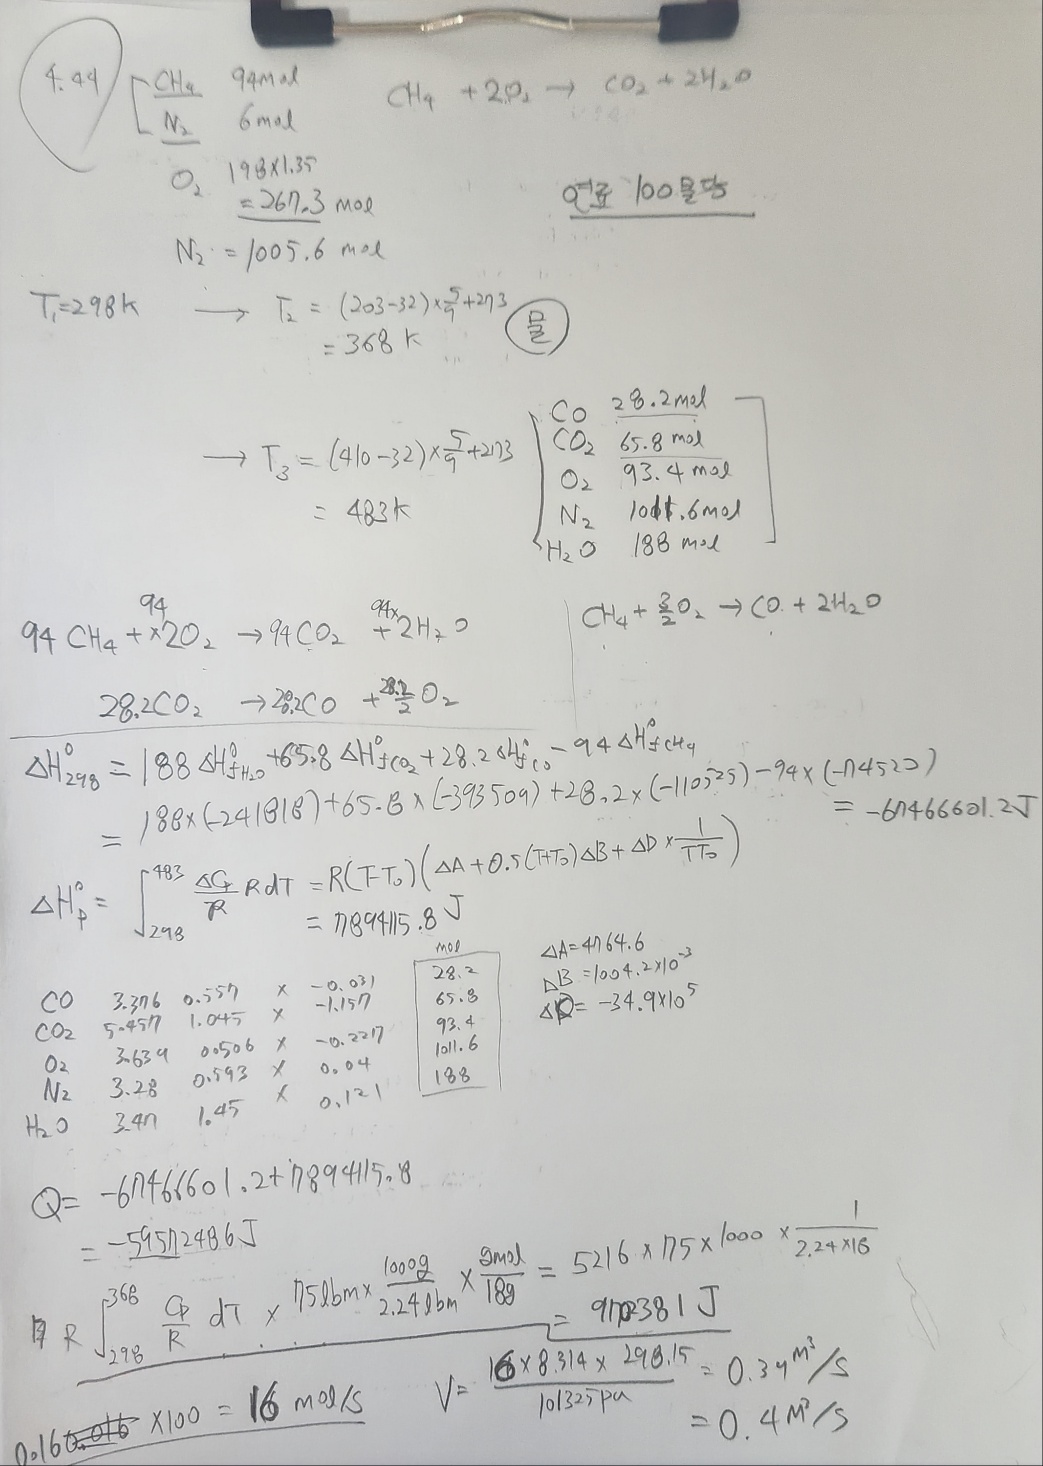 4.44
CH4 94mol
N2 6mol
CH4 + 2O2 → CO2 + 2H2O
O2 198×1.35
= 267.3 mol
연료 100몰당
N2 = 1005.6 mol
T1=298K → T2 = (203-32)×5/9+273
= 368 K
물
→ T3 = (410-32)×5/9+273
= 483K
CO 28.2mol
CO2 65.8 mol
O2 93.4 mol
N2 1011.6mol
H2O 188 mol
94 CH4 + 94×2O2 → 94CO2 + 94×2H2O
CH4 + 3/2 O2 → CO + 2H2O
28.2CO2 → 28.2CO + 28.2/2 O2
ΔH°298 = 188 ΔH°fH2O + 65.8 ΔH°fCO2 + 28.2 ΔH°fCO - 94 ΔH°fCH4
= 188×(-241818)+65.8×(-393509)+28.2×(-110525)-94×(-74520)
= -67466601.2J
ΔH°p = ∫298 483 ΔCp/R RdT = R(T-T0)(ΔA + 0.5(T+T0)ΔB + ΔD × 1/TT0)
= 7894115.8 J
mol
CO 3.376 0.557 × -0.031 28.2
CO2 5.457 1.045 × -1.157 65.8
O2 3.639 0.0506 × -0.227 93.4
N2 3.28 0.593 × 0.04 1011.6
H2O 3.47 1.45 × 0.121 188
ΔA=4764.6
ΔB=1004.2×10-3
ΔD= -34.9×105
Q= -67466601.2+7894115.8
= -59572486J
R ∫298 368 Cp/R dT × 75lbm× 1000g/2.24lbm × gmol/18g = 5216 × 75 × 1000 × 1/2.24×18
= 9702381 J
0.16 ×100 = 16 mol/s
V= 16×8.314×298.15/101325pa = 0.39 M3/s
= 0.4 M3/s